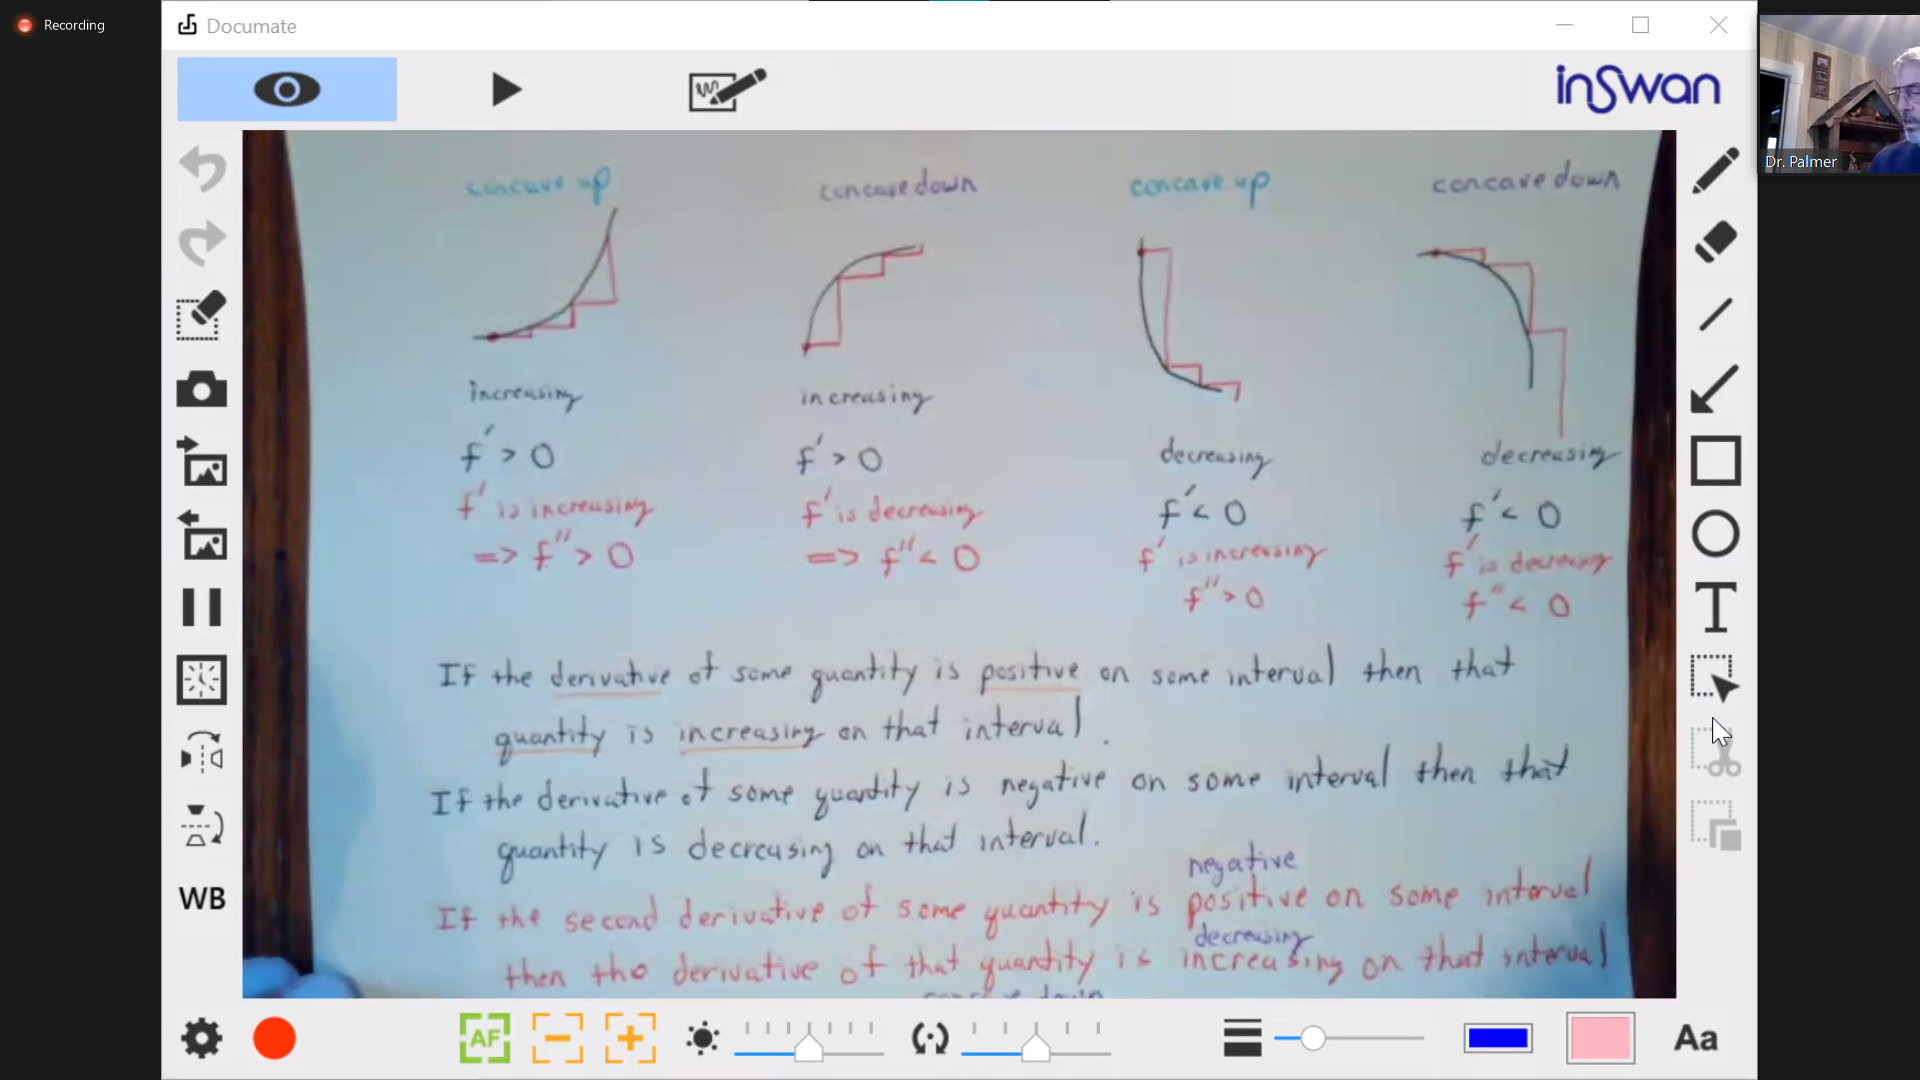 Recording
Documate
inSwan
Dr. Palmer
concave up
concave down
concave up
concave down
increasing
f' > 0
f' is increasing
=> f'' > 0
increasing
f' > 0
f' is decreasing
=> f'' < 0
decreasing
f' < 0
f' is increasing
f'' > 0
decreasing
f' < 0
f' is decreasing
f'' < 0
If the derivative of some quantity is positive on some interval then that
quantity is increasing on that interval.
If the derivative of some quantity is negative on some interval then that
quantity is decreasing on that interval.
negative
If the second derivative of some quantity is positive on some interval
decreasing
then the derivative of that quantity is increasing on that interval
concave down
WB
AF
Aa
T